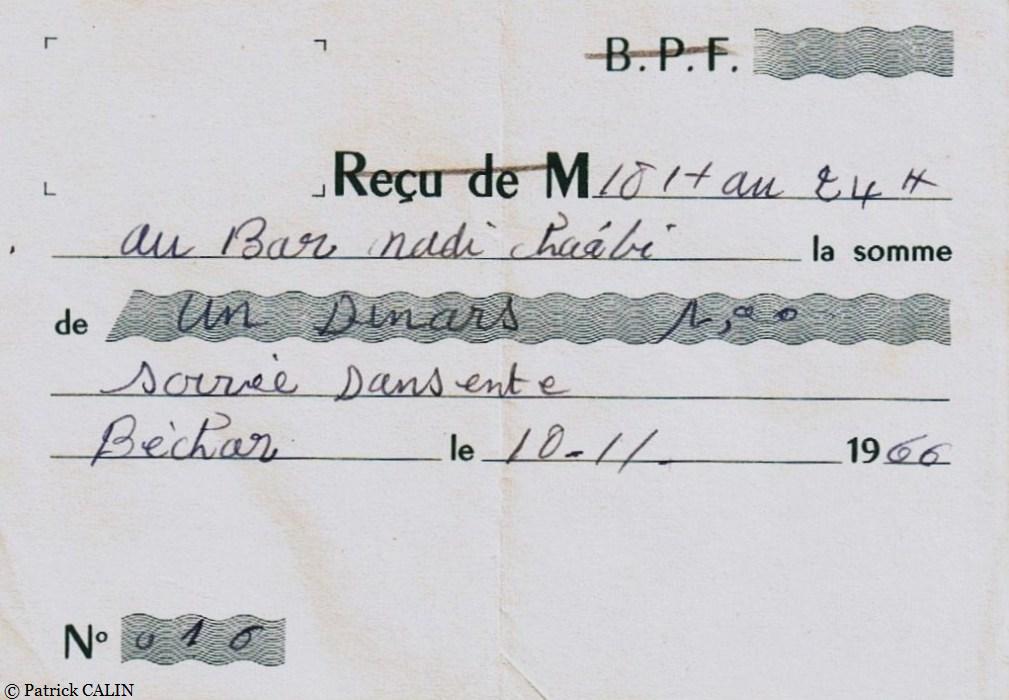 B.P.F.
Reçu de M 18 H au 24 H
au Bar nadi chaâbi la somme
de Un Dinars 1,00
soirèe Dansente
Bèchar le 10-11. 1966
Nº 016
© Patrick CALIN